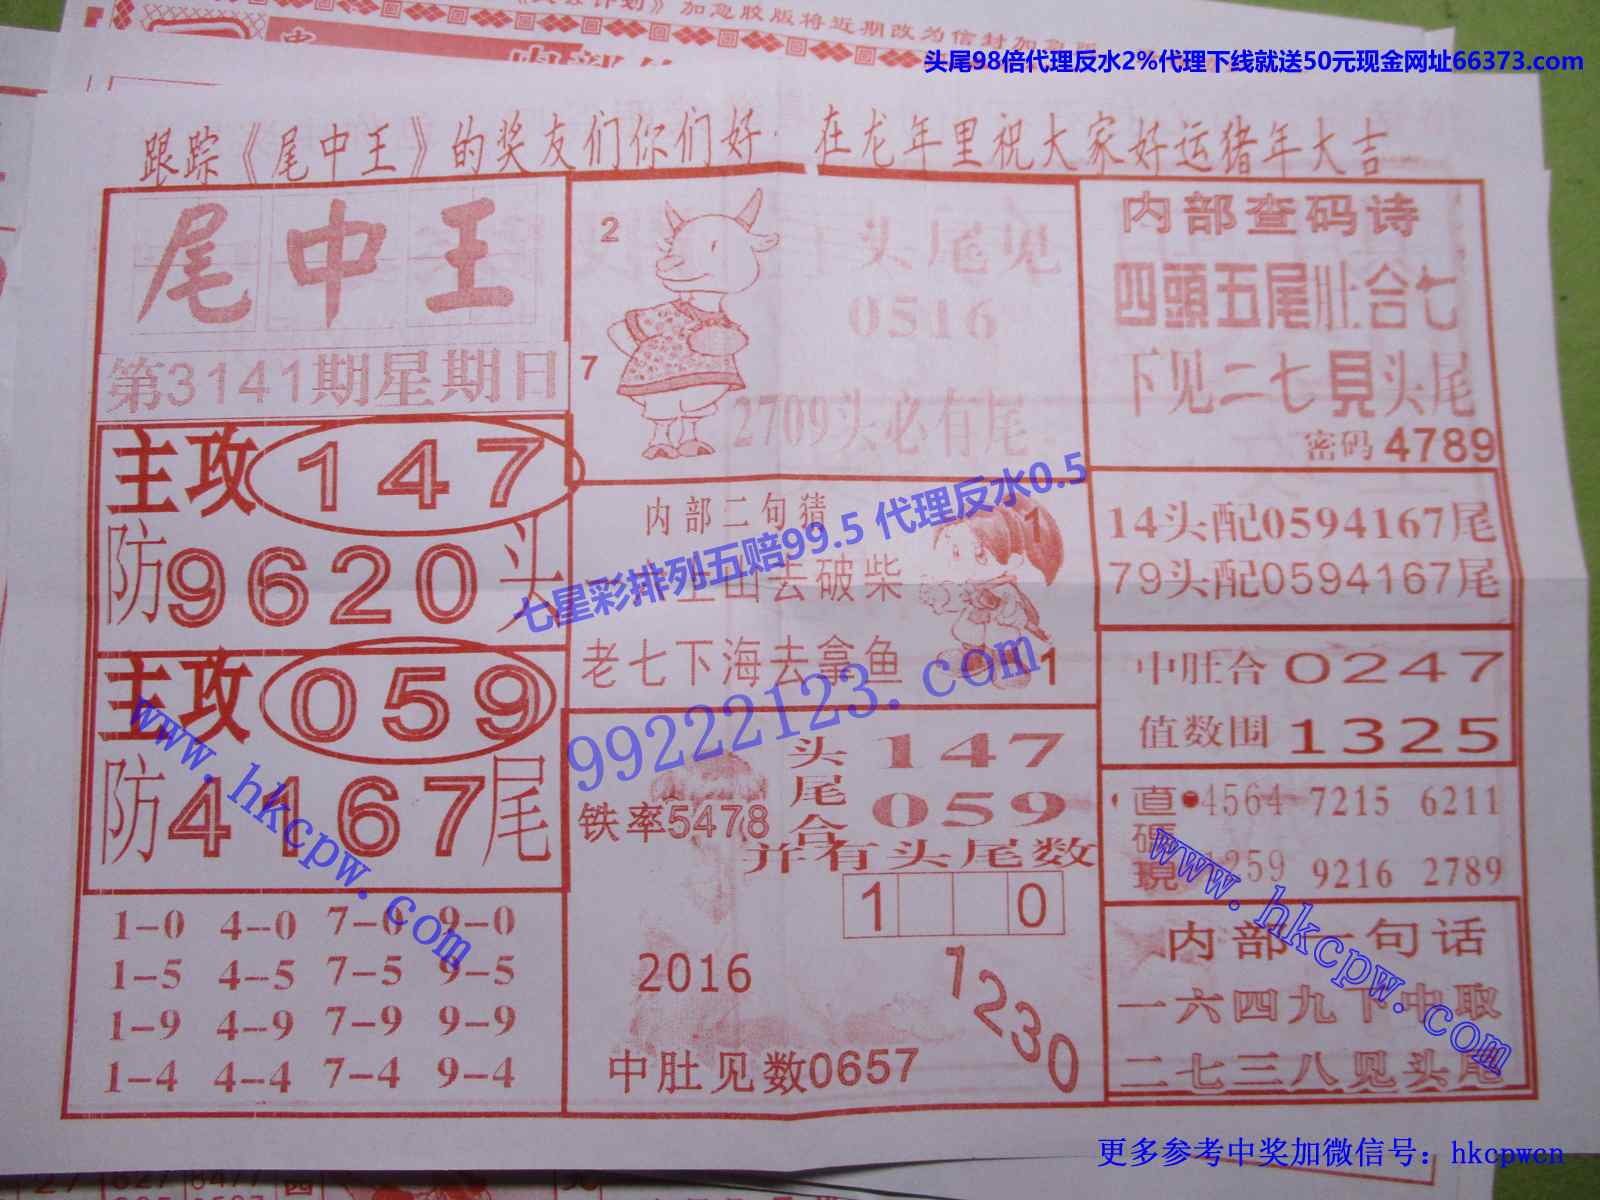 加急胶版将近期改为信封加急
头尾98倍代理反水2%代理下线就送50元现金网址66373.com
跟踪《尾中王》的奖友们你们好 在龙年里祝大家好运猪年大吉
尾中王
第3141期星期日
主攻 147
防9620头
主攻 059
防4167尾
1-0 4--0 7-0 9-0
1-5 4-5 7-5 9-5
1-9 4-9 7-9 9-9
1-4 4-4 7-4 9-4
2
7
头尾见
0516
2709头必有尾
内部二句猜
去破柴
1
老七下海去拿鱼
1
七星彩排列五赔99.5 代理反水0.5
99222123.com
头 147
尾 059
合
铁率5478
并有头尾数
1 0
2016
1230
中肚见数0657
内部查码诗
四頭五尾肚合七
下见二七見头尾
密码 4789
14头配0594167尾
79头配0594167尾
中肚合 0247
值数围 1325
直码現
4564 7215 6211
1259 9216 2789
内部一句话
一六四九下中取
二七三八见头尾
www.hkcpw.com
www.hkcpw.com
更多参考中奖加微信号：hkcpwcn